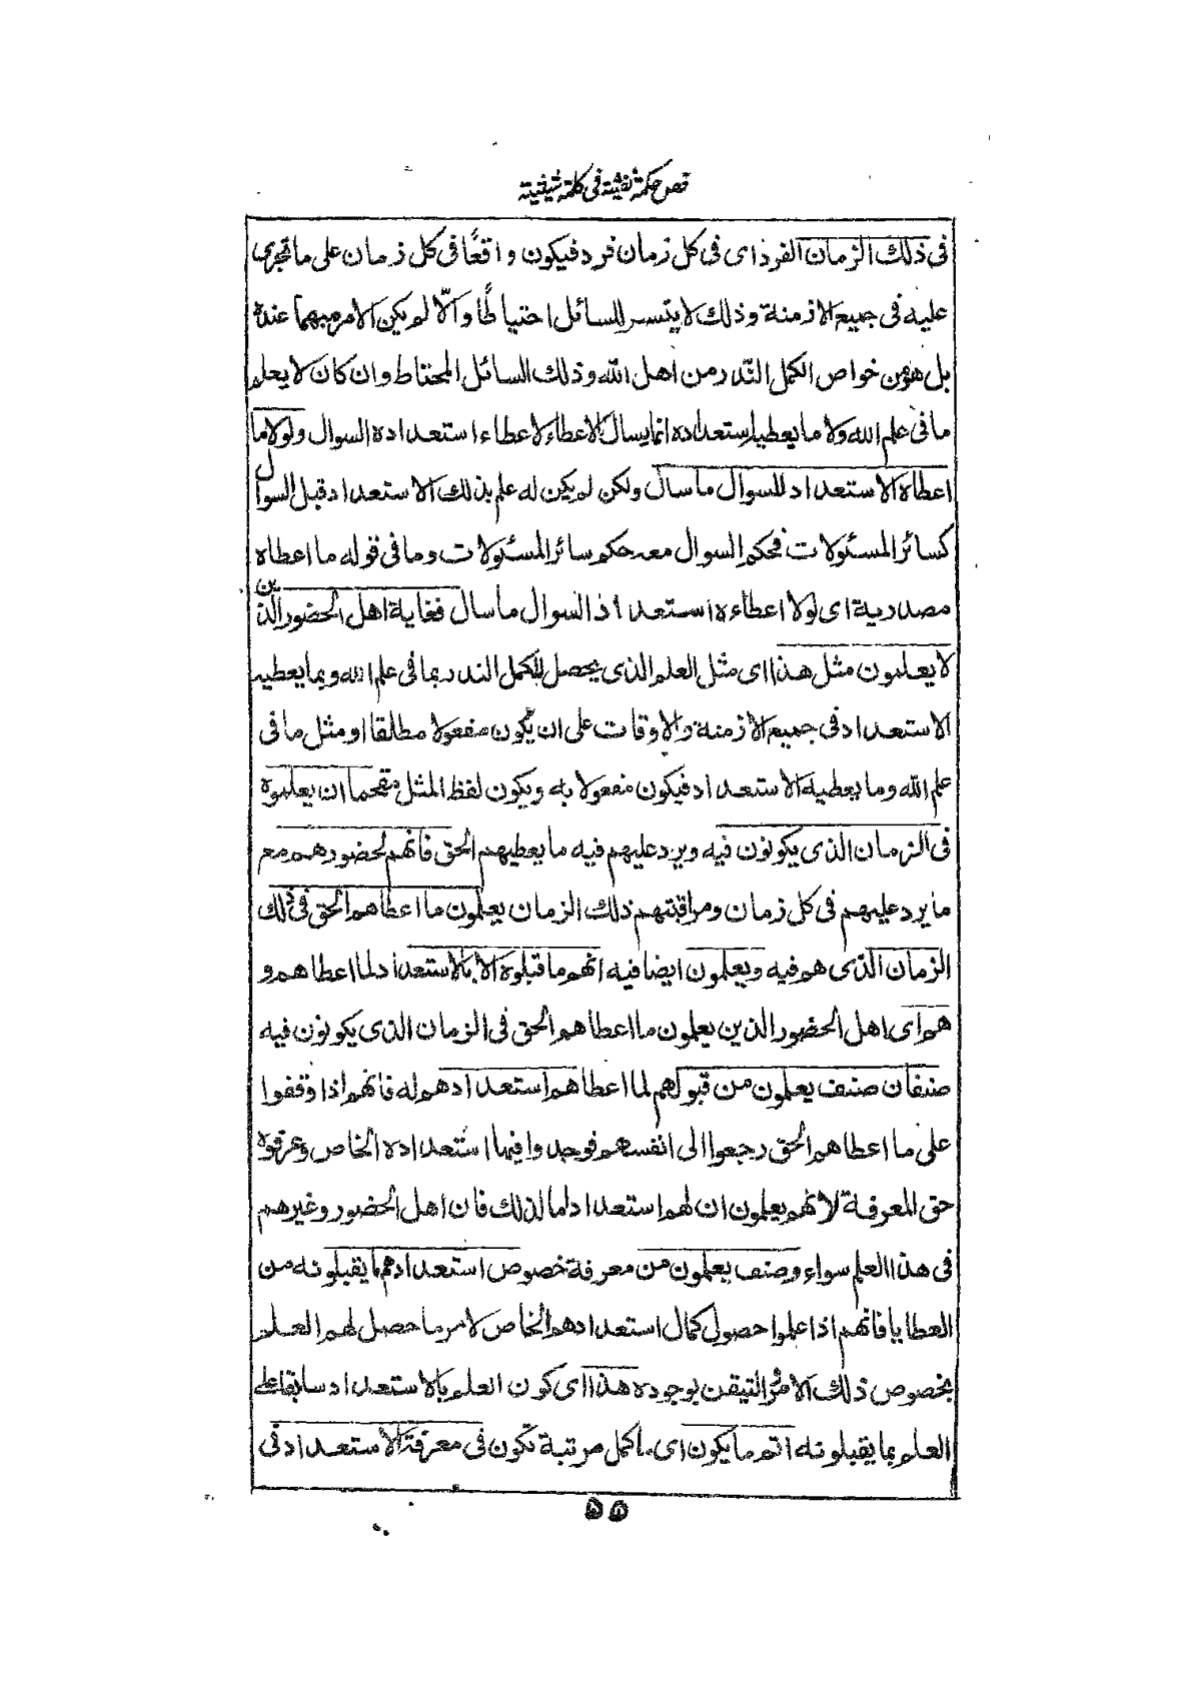 فص حكمة نفثية فى كلمة شيثية
فى ذلك الزمان الفرد اى فى كل زمان فرد فيكون واقعًا فى كل زمان على ما تجرى
عليه فى جميع الازمنة وذلك لا يتيسر للسائل احتياطًا والّا لم يكن الامر مبهما عنده
بل هو من خواص الكمل الندر من اهل الله وذلك السائل المحتاط وان كان لا يعلم
ما فى علم الله ولا ما يعطيه استعداده انما يسال لاعطاء استعداده السوال ولولا ما
اعطاه الاستعداد للسوال ما سال ولكن لم يكن له علم بذلك الاستعداد قبل السوال
كسائر المسئولات فحكم السوال معه حكم سائر المسئولات وما فى قوله ما اعطاه
مصدرية اى لولا اعطاءه استعداد السوال ما سال فغاية اهل الحضور الذين
لا يعلمون مثل هذا اى مثل العلم الذى يحصل للكمل الندر بما فى علم الله وبما يعطيه
الاستعداد فى جميع الازمنة والاوقات على ان يكون مفعولا مطلقا او مثل ما فى
علم الله وما يعطيه الاستعداد فيكون مفعولا به ويكون لفظ المثل مقحما ان يعلموه
فى الزمان الذى يكونون فيه ويرد عليهم فيه ما يعطيهم الحق فانهم لحضورهم مع
ما يرد عليهم فى كل زمان ومراقبتهم ذلك الزمان يعلمون ما اعطاهم الحق فى ذلك
الزمان الذى هم فيه ويعلمون ايضا فيه انهم ما قبلوه الا بالاستعداد لما اعطاهم و
هم اى اهل الحضور الذين يعلمون ما اعطاهم الحق فى الزمان الذى يكونون فيه
صنفان صنف يعلمون من قبولهم لما اعطاهم استعدادهم له فانهم اذا وقفوا
على ما اعطاهم الحق رجعوا الى انفسهم فوجدوا فيها استعداده الخاص وعرفوه
حق المعرفة لا انهم يعلمون ان لهم استعدادا ما لذلك فان اهل الحضور وغيرهم
فى هذا العلم سواء وصنف يعلمون من معرفة خصوص استعدادهم ما يقبلونه من
العطايا فانهم اذا علموا حصول كمال استعدادهم الخاص لامر ما حصل لهم العلم
بخصوص ذلك الامر والتيقن بوجوده هذا اى كون العلم بالاستعداد سابقا على
العلم بما يقبلونه اتم ما يكون اى اكمل مرتبة تكون فى معرفة الاستعداد فى
۵۵